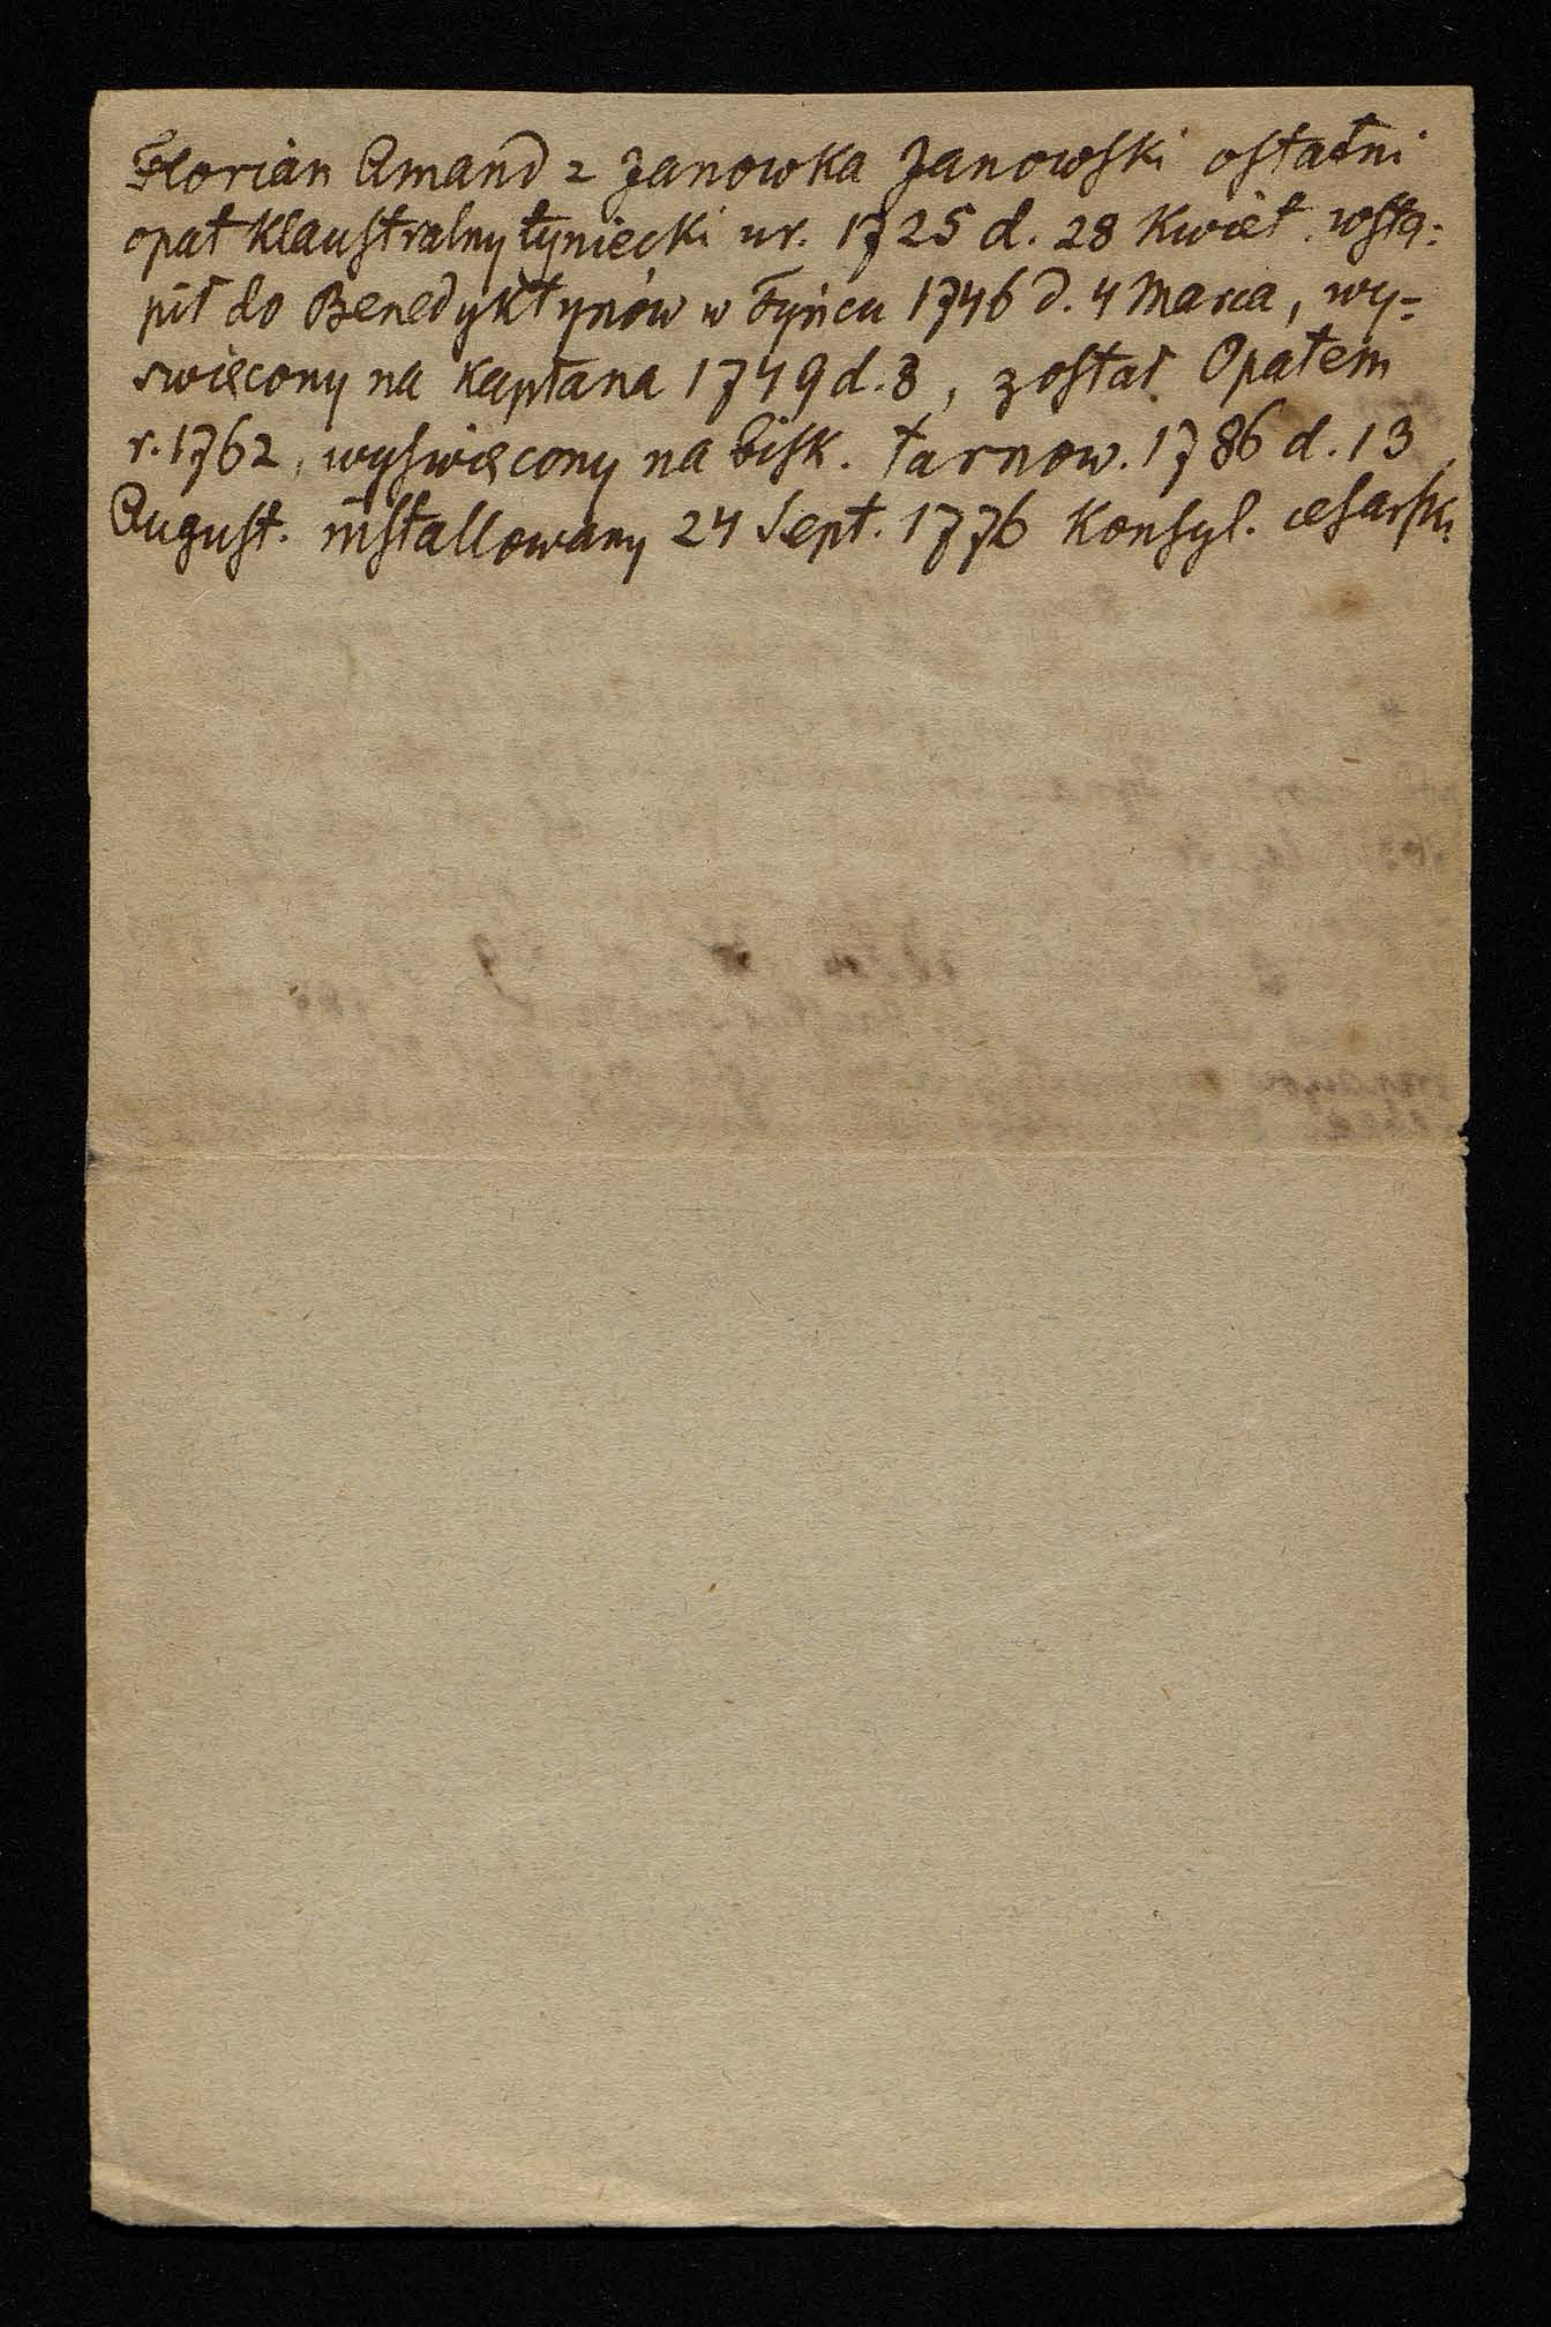 Florian Amand z Janowka Janowski ostatni
opat klaustralny tyniecki ur. 1725 d. 28 Kwiet. wstą-
pił do Benedyktynów w Tyńcu 1746 d. 4 Marca, wy-
swięcony na kapłana 1749 d. 8, został Opatem
r. 1762, wyświęcony na bisk. tarnow. 1786 d. 13
August. installowany 24 Sept. 1776 Konsyl. cesarski